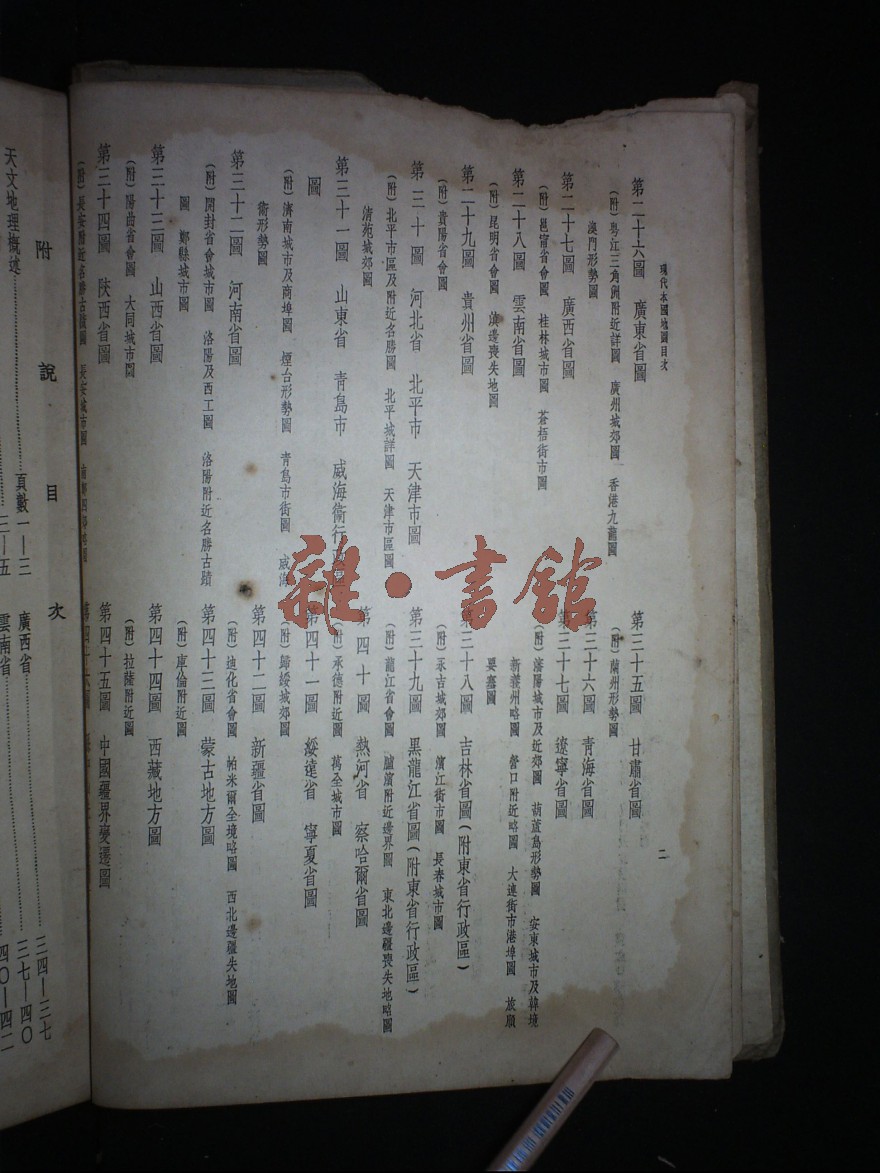 現代本國地圖目次
二
第二十六圖 廣東省圖
(附)粵江三角洲附近詳圖 廣州城郊圖 香港九龍圖
澳門形勢圖
第二十七圖 廣西省圖
(附)邕甯省會圖 桂林城市圖 蒼梧街市圖
第二十八圖 雲南省圖
(附)昆明省會圖 滇邊喪失地圖
第二十九圖 貴州省圖
(附)貴陽省會圖
第三十圖 河北省 北平市 天津市圖
(附)北平市區及附近名勝圖 北平城詳圖 天津市區圖
清苑城郊圖
第三十一圖 山東省 青島市 威海衞行政區
圖
(附)濟南城市及商埠圖 煙台形勢圖 青島市街圖 威海
衞形勢圖
第三十二圖 河南省圖
(附)開封省會城市圖 洛陽及西工圖 洛陽附近名勝古蹟
圖 鄭縣城市圖
第三十三圖 山西省圖
(附)陽曲省會圖 大同城市圖
第三十四圖 陝西省圖
(附)長安附近名勝古蹟圖 長安城市圖 南鄭
第三十五圖 甘肅省圖
(附)蘭州形勢圖
第三十六圖 青海省圖
第三十七圖 遼寧省圖
(附)瀋陽城市及近郊圖 葫蘆島形勢圖 安東城市及韓境
新義州略圖 營口附近略圖 大連街市港埠圖 旅順
要塞圖
第三十八圖 吉林省圖(附東省行政區)
(附)永吉城郊圖 濱江街市圖 長春城市圖
第三十九圖 黑龍江省圖(附東省行政區)
(附)龍江省會圖 臚濱附近邊界圖 東北邊疆喪失地略圖
第四十圖 熱河省 察哈爾省圖
(附)承德附近圖 萬全城市圖
第四十一圖 綏遠省 寧夏省圖
(附)歸綏城郊圖
第四十二圖 新疆省圖
(附)迪化省會圖 帕米爾全境略圖 西北邊疆失地圖
第四十三圖 蒙古地方圖
(附)庫倫附近圖
第四十四圖 西藏地方圖
(附)拉薩附近圖
第四十五圖 中國疆界變遷圖
第四十六圖
附說目次
頁數一—三
天文地理概述
廣西省 三四—三七
三七—四〇
三—五
雲南省 四〇—四二
雜·書館